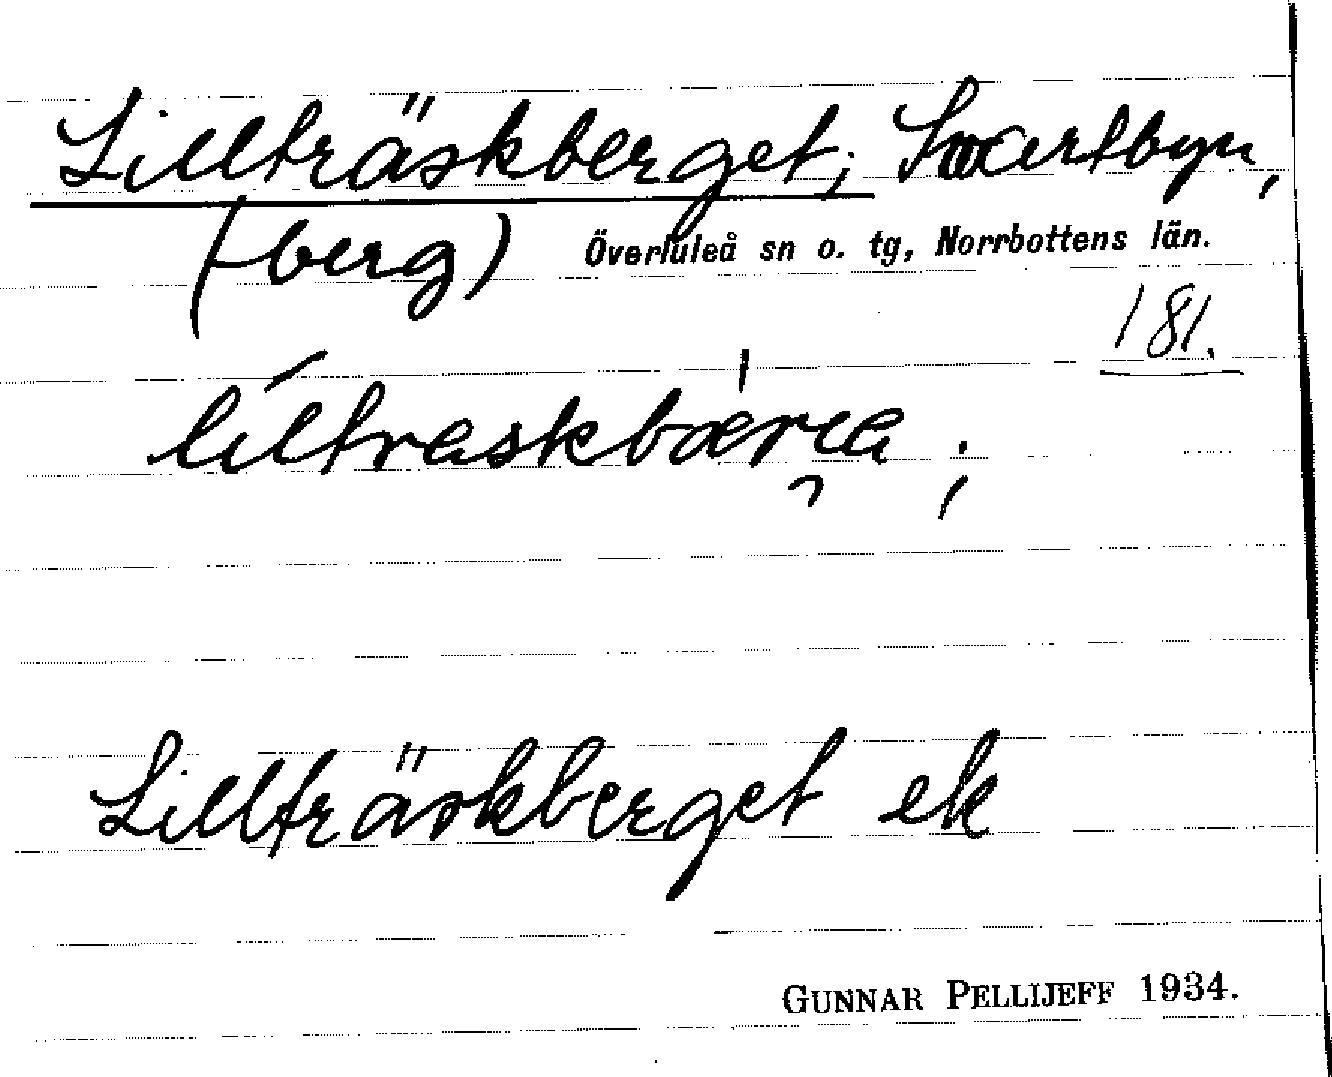 Lillträskberget; Svartbyn,
(-berg) Överluleå sn o. tg, Norrbottens län.
181.
Lillträskberget ek
GUNNAR PELLIJEFF 1934.